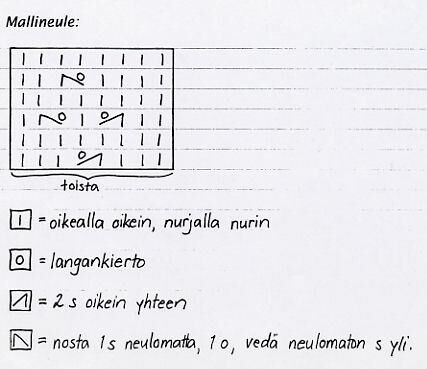 Mallineule:
toista
= oikealla oikein, nurjalla nurin
= langankierto
= 2 s oikein yhteen
= nosta 1 s neulomatta, 1 o, vedä neulomaton s yli.